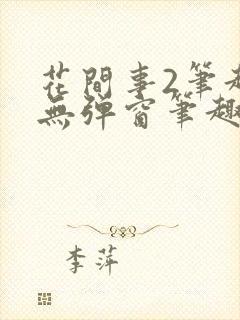 花間事2筆趣
無彈窗筆趣
李萍